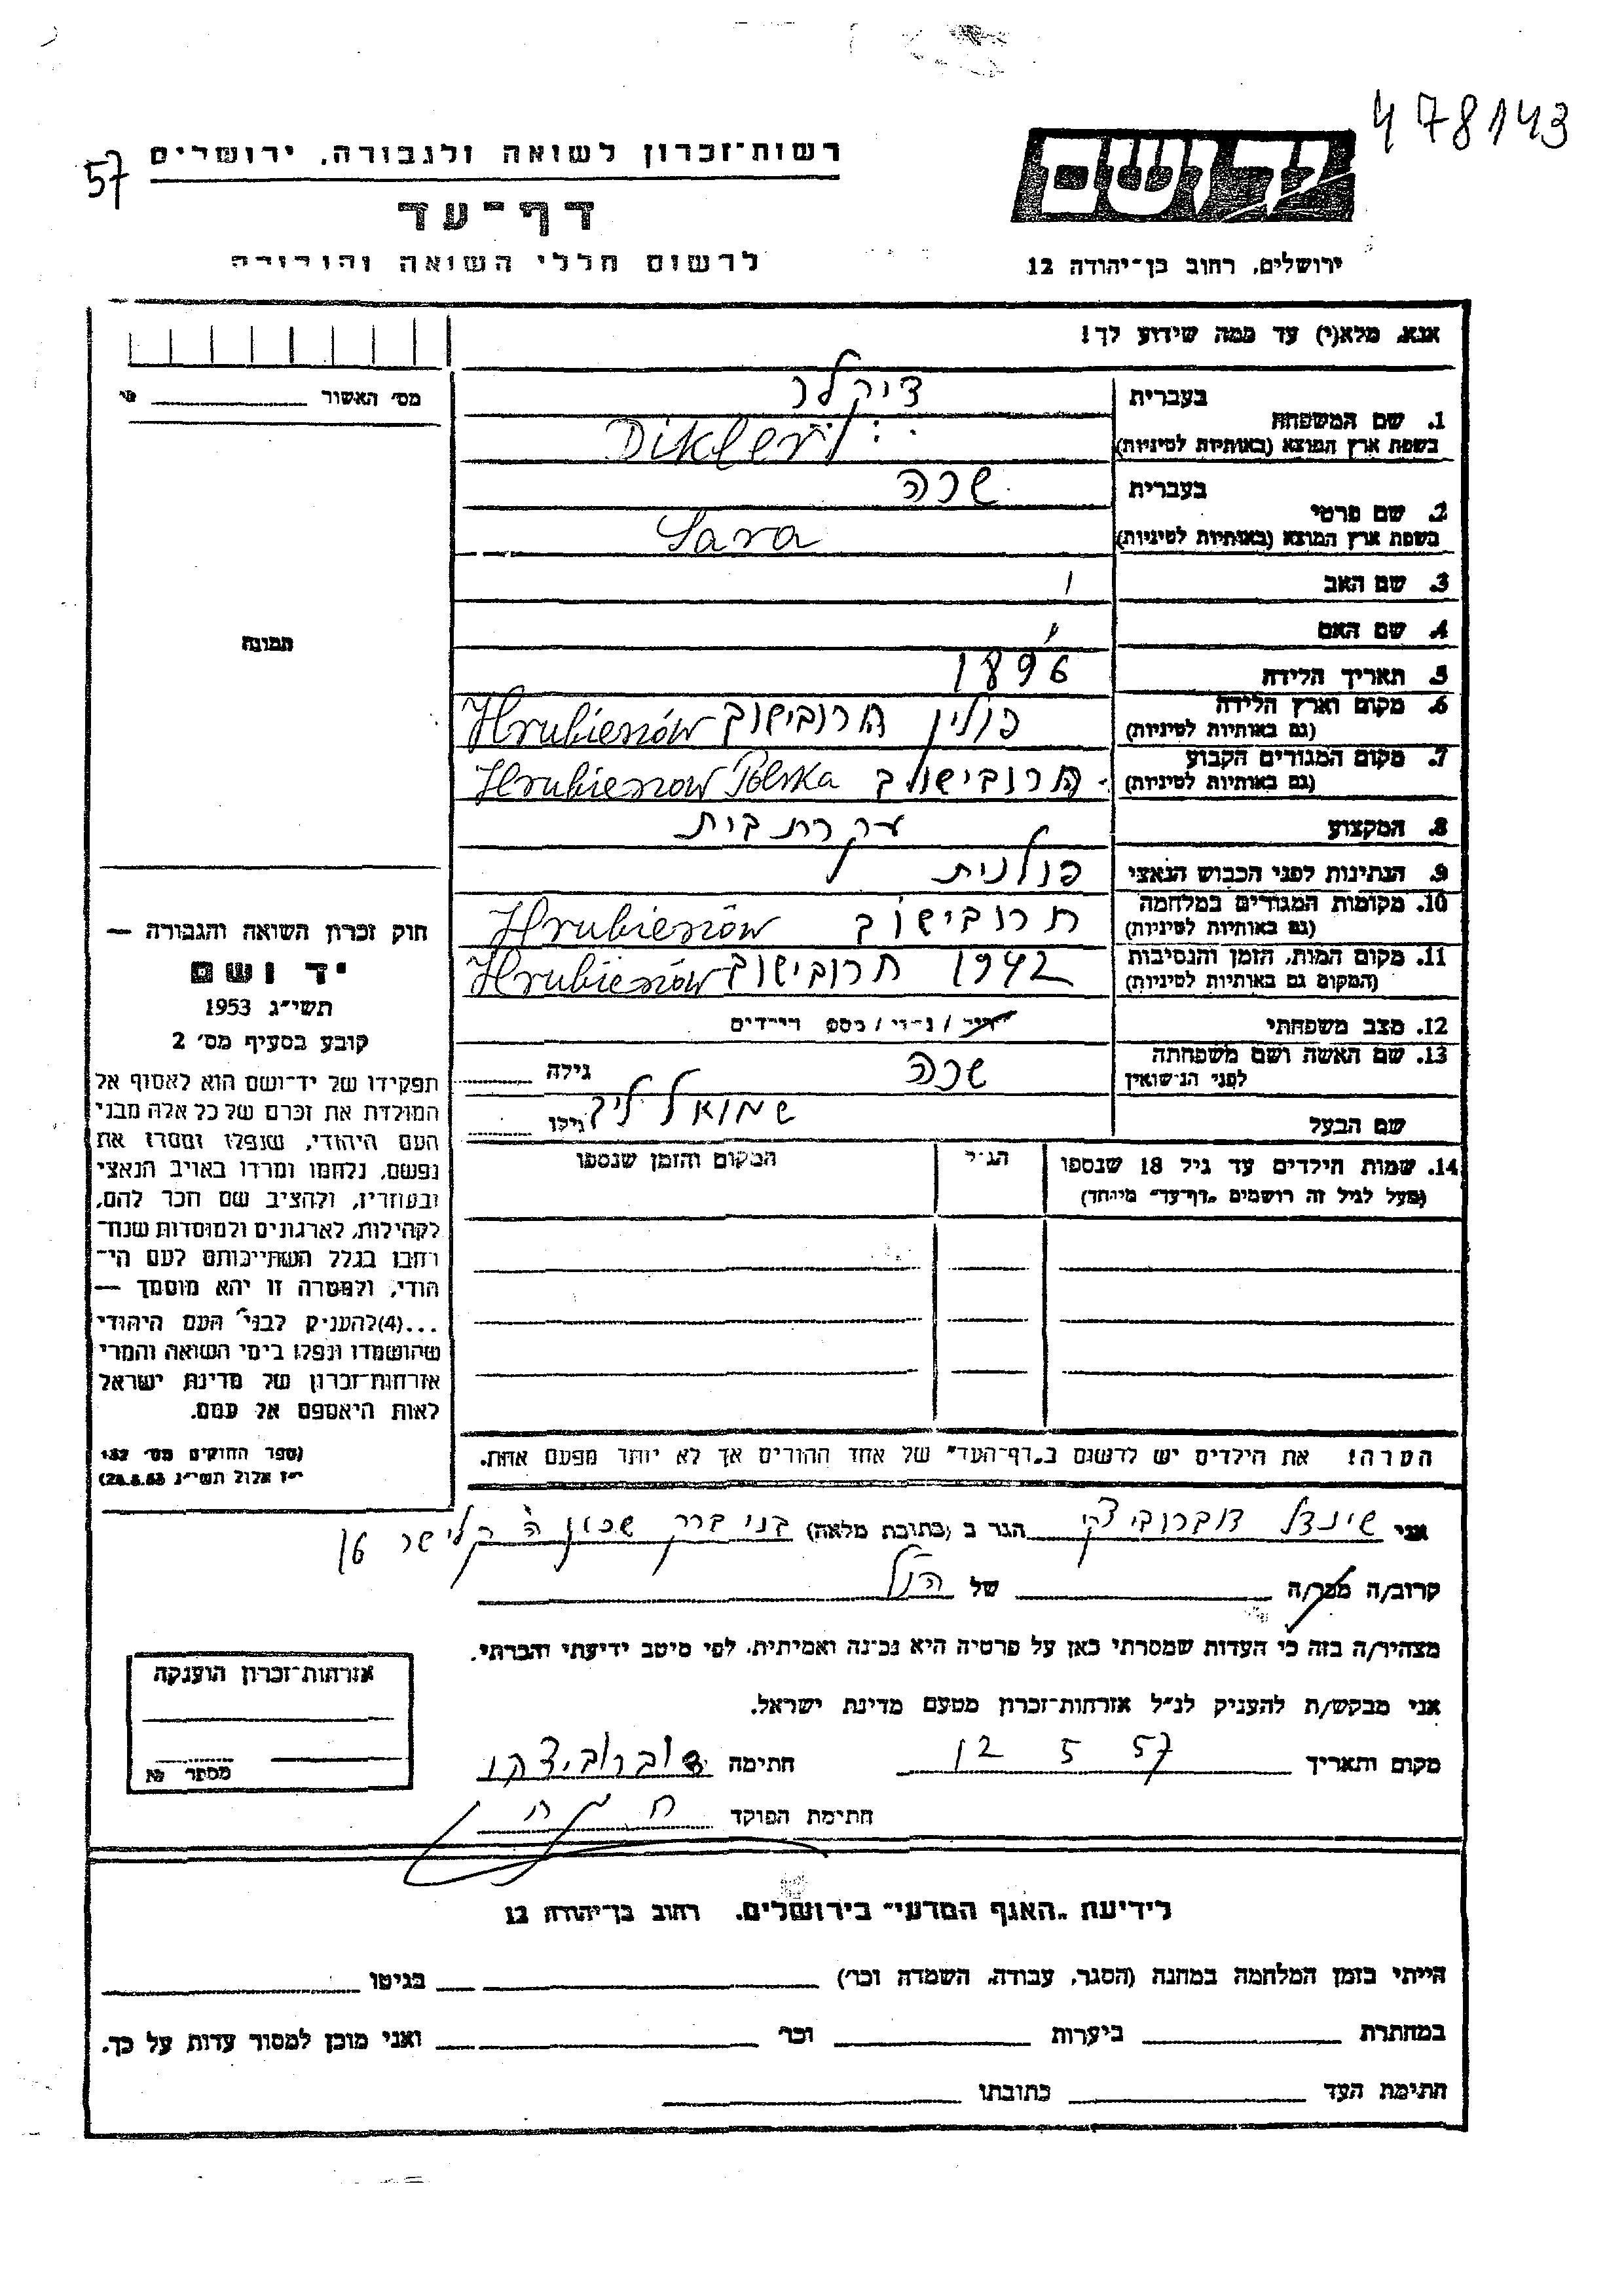 478143
57
רשות־זכרון לשואה ולגבורה, ירושלים
דף־עד
לרשום חללי השואה והגבורה
יד ושם
ירושלים, רחוב בן־יהודה 12
אנא, מלא(י) עד כמה שידוע לך!
מס׳ האשור
בעברית דיקלר
1. שם המשפחה
בשפת ארץ המוצא (באותיות לטיניות) Dikler
בעברית שרה
2. שם פרטי
בשפת ארץ המוצא (באותיות לטיניות) Sara
3. שם האב
4. שם האם
תמונה
5. תאריך הלידה 1896
6. מקום וארץ הלידה פולין הרובישוב Hrubieszów
(גם באותיות לטיניות)
7. מקום המגורים הקבוע הרובישוב Hrubieszow Polska
(גם באותיות לטיניות)
8. המקצוע עקרת בית
9. הנתינות לפני הכבוש הנאצי פולנית
10. מקומות המגורים במלחמה הרובישוב Hrubieszów
(גם באותיות לטיניות)
11. מקום המות, הזמן והנסיבות 1942 הרובישוב Hrubieszów
(המקום גם באותיות לטיניות)
12. מצב משפחתי / נשוי / מספר הילדים
13. שם האשה ושם משפחתה שרה גילה
לפני הנישואין
שם הבעל שמואל לייב גילו
14. שמות הילדים עד גיל 18 שנספו הגיל המקום והזמן שנספו
(מעל לגיל זה רושמים „דף־עד״ מיוחד)
הערה! את הילדים יש לרשום ב„דף־העד״ של אחד ההורים אך לא יותר מפעם אחת.
חוק זכרון השואה והגבורה —
יד ושם
תשי״ג 1953
קובע בסעיף מס׳ 2
תפקידו של יד־ושם הוא לאסוף אל
המולדת את זכרם של כל אלה מבני
העם היהודי, שנפלו ומסרו את
נפשם, נלחמו ומרדו באויב הנאצי
ובעוזריו, ולהציב שם וזכר להם,
לקהילות, לארגונים ולמוסדות שנח־
רבו בגלל השתייכותם לעם הי־
הודי, ולמטרה זו יהא מוסמך —
...(4) להעניק לבני העם היהודי
שהושמדו ונפלו בימי השואה והמרי
אזרחות־זכרון של מדינת ישראל
לאות היאספם אל עמם.
(ספר החוקים מס׳ 132
י״ז אלול תשי״ג 28.8.53)
אני שינדל דוברוביצקי הגר ב (כתובת מלאה) בני ברק שכון ה קלישר 16
קרוב/ה מכר/ה של הנ״ל
מצהיר/ה בזה כי העדות שמסרתי כאן על פרטיה היא נכונה ואמיתית, לפי מיטב ידיעתי והכרתי.
אני מבקש/ת להעניק לנ״ל אזרחות־זכרון מטעם מדינת ישראל.
מקום ותאריך 12 5 57 חתימה דוברוביצקי
חתימת הפוקד
אזרחות־זכרון הוענקה
מספר
לידיעת „האגף המדעי״ בירושלים, רחוב בן־יהודה 12
הייתי בזמן המלחמה במחנה (הסגר, עבודה, השמדה וכו׳) בגיטו
במחתרת ביערות וכו׳ ואני מוכן למסור עדות על כך.
חתימת העד כתובתו